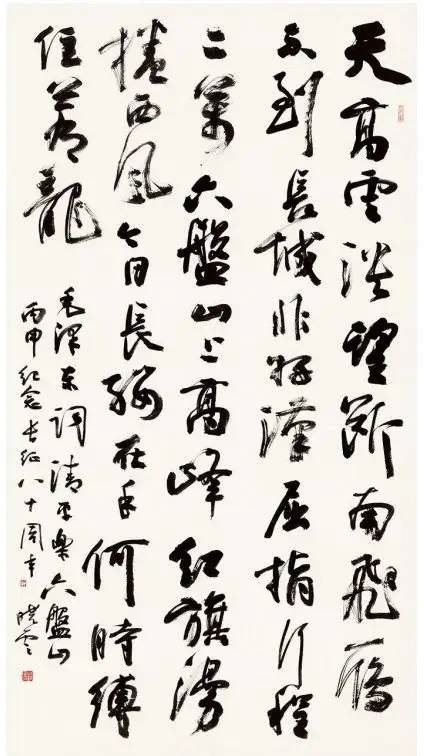 天高雲淡望断南飛雁
不到長城非好漢屈指行程
二萬六盤山上高峰紅旗漫
捲西風今日長纓在手何時縛
住蒼龍
毛澤东词清平樂六盤山
丙申紀念长征八十周年 曉雲